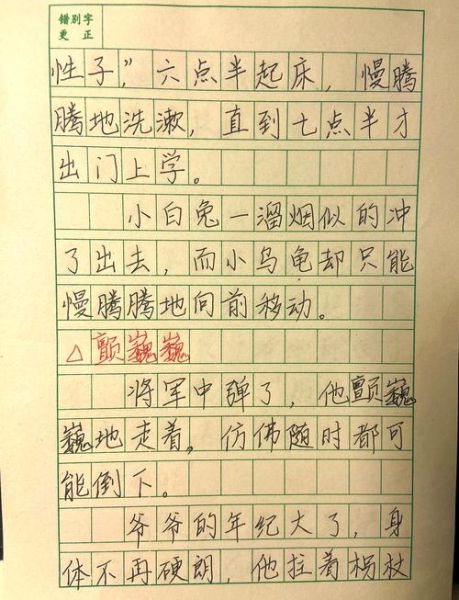 错别字
更 正
性子”,六点半起床,慢腾
腾地洗漱,直到七点半才
出门上学。
小白兔一溜烟似的冲
了出去,而小乌龟却只能
慢腾腾地向前移动。
△颤巍巍
将军中弹了,他颤巍
巍地走着,仿佛随时都可
能倒下。
爷爷的年纪大了,身
体不再硬朗,他拄着拐杖